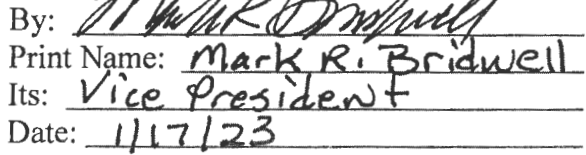 By: Mark R Bridwell
Print Name: Mark R. Bridwell
Its: Vice President
Date: 1/17/23